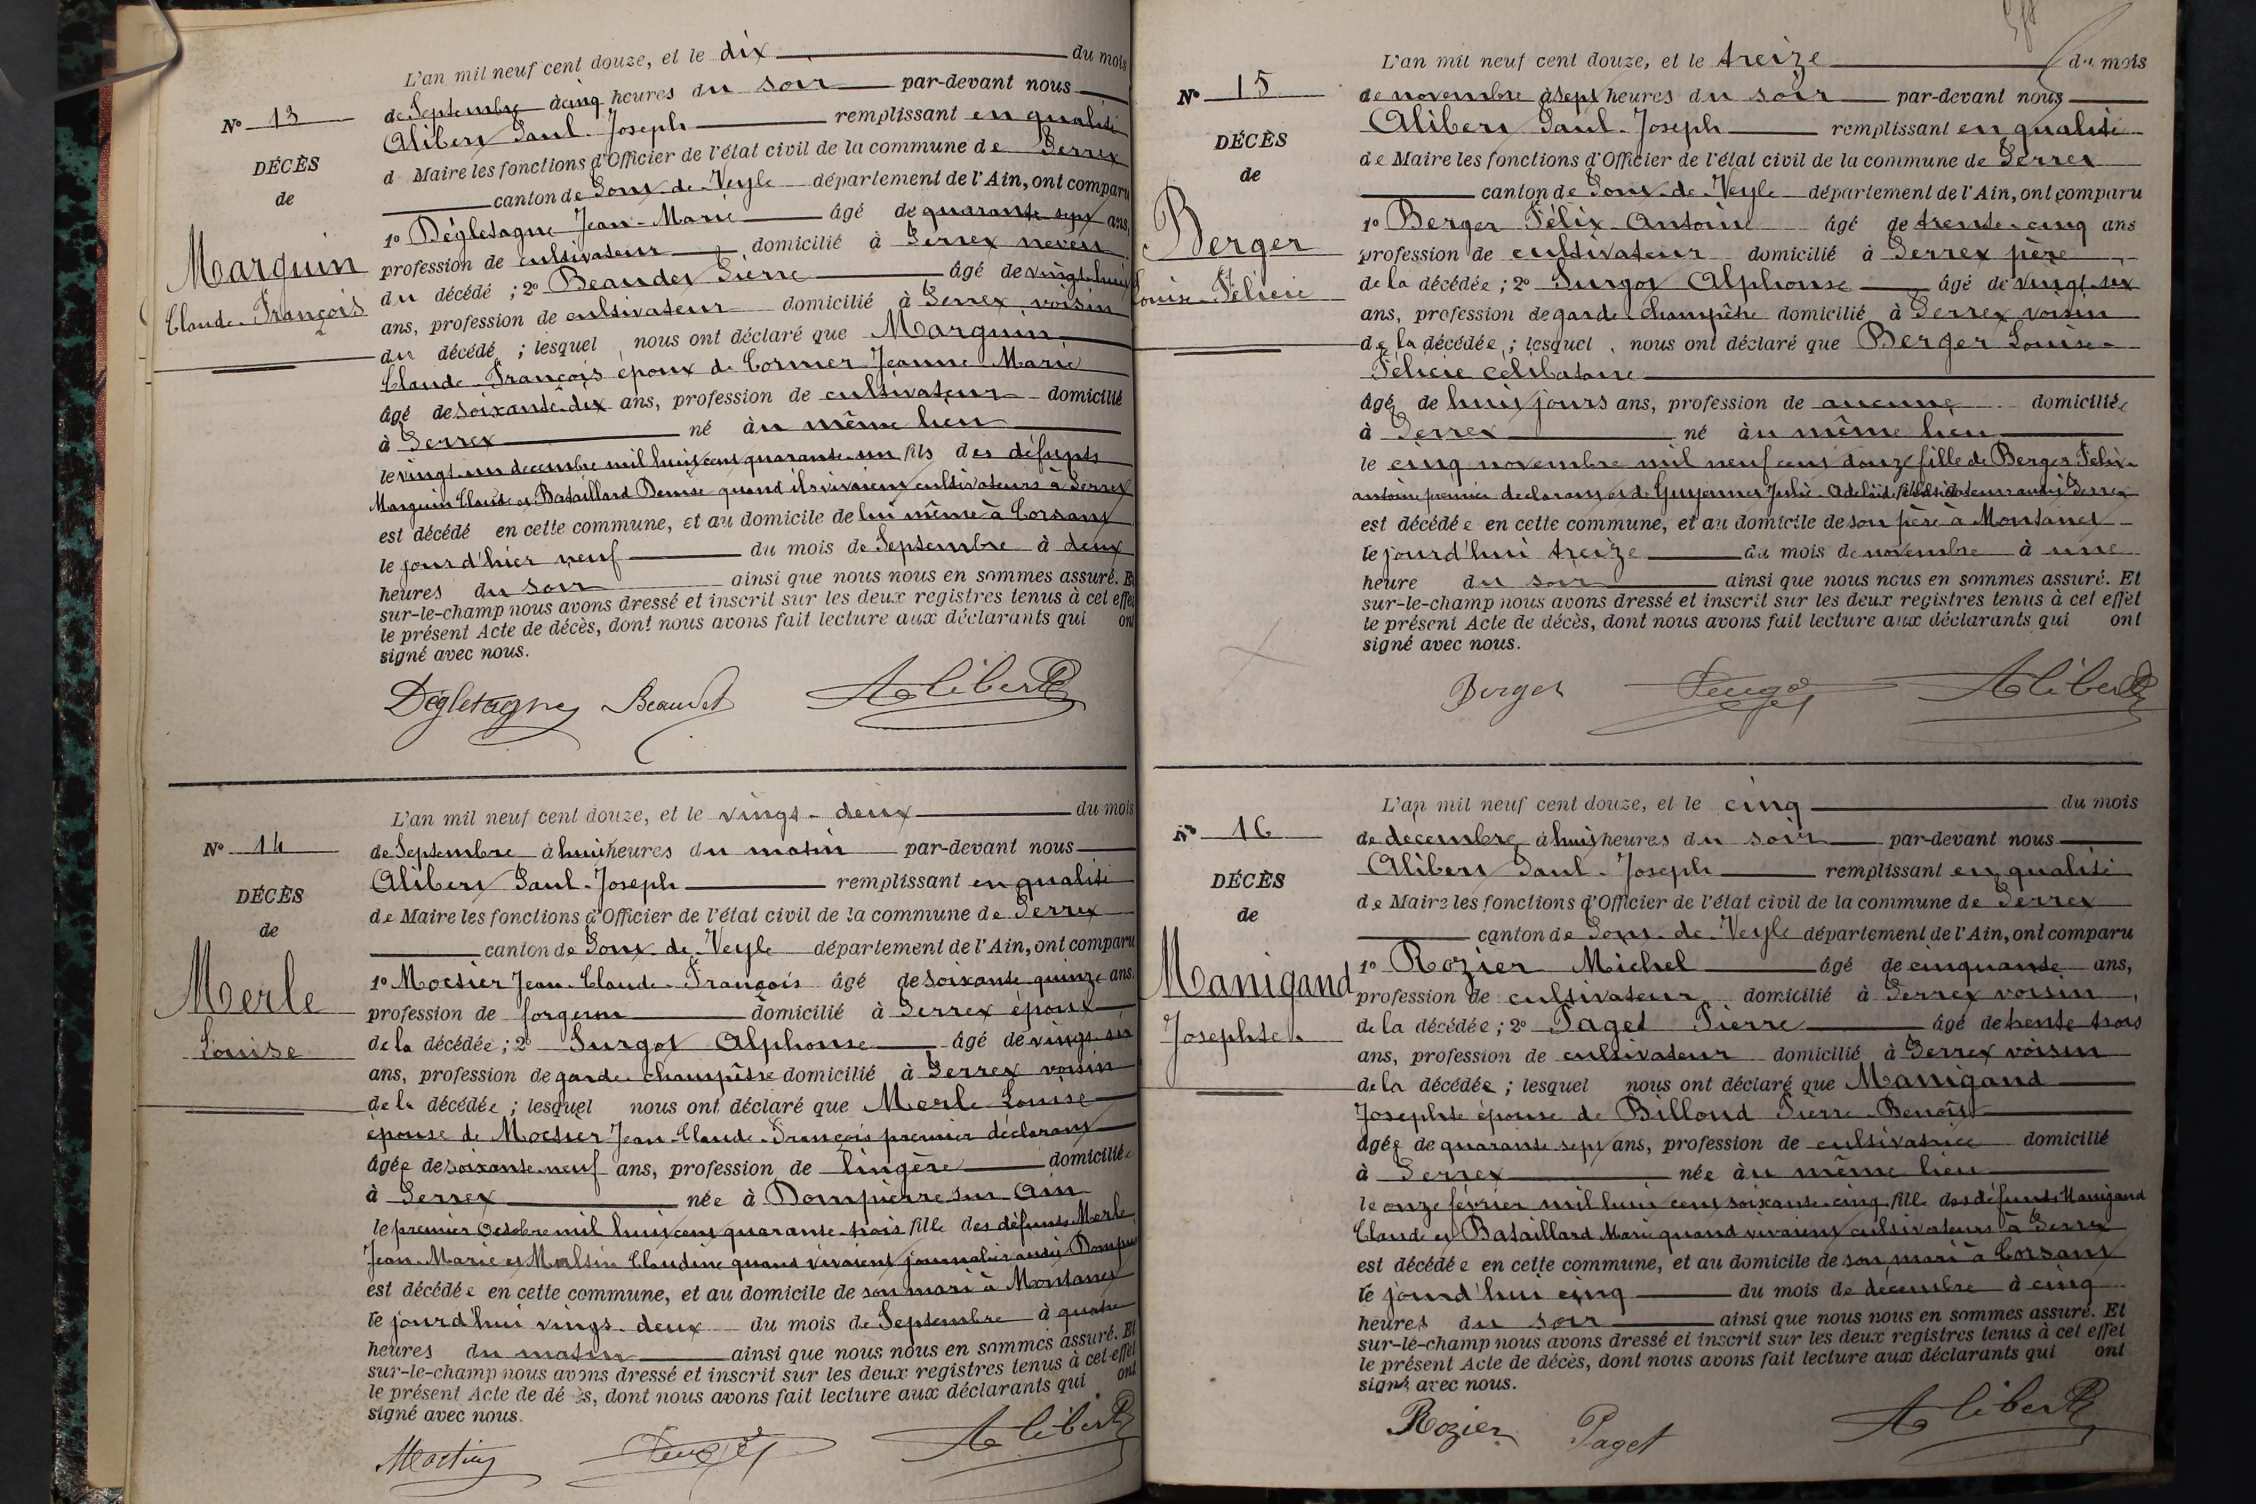 L'an mil neuf cent douze, et le dix du mois
N° 13
de Septembre à cinq heures du soir par-devant nous
Alibert Paul-Joseph remplissant en qualité
DÉCÈS
d Maire les fonctions d'Officier de l'état civil de la commune de Perrex
de
canton de Pont-de-Veyle département de l'Ain, ont comparu
1° Dégletagne Jean-Marie âgé de quarante sept ans,
Marguin
profession de cultivateur domicilié à Perrex neveu
Claude-François
du décédé ; 2° Beaudet Pierre âgé de vingt-huit
ans, profession de cultivateur domicilié à Perrex voisin
du décédé ; lesquel nous ont déclaré que Marguin
Claude-François époux de Cormier Jeanne Marie
âgé de soixante-dix ans, profession de cultivateur domicilié
à Perrex né à u même lieu
le vingt-un decembre mil huit cent quarante-un fils des défunts
Marguin Claude et Bataillard Denise quand ils vivaient cultivateurs à Perrex
est décédé en cette commune, et au domicile de lui même à Corsant
le jour d'hier neuf du mois de Septembre à deux
heures du soir ainsi que nous nous en sommes assuré. Et
sur-le-champ nous avons dressé et inscrit sur les deux registres tenus à cet effet
le présent Acte de décès, dont nous avons fait lecture aux déclarants qui ont
signé avec nous.
Dégletagne Beaudet Alibert
L'an mil neuf cent douze, et le vingt-deux du mois
N° 14
de Septembre à huit heures du matin par-devant nous
Alibert Paul-Joseph remplissant en qualité
DÉCÈS
de Maire les fonctions d'Officier de l'état civil de la commune de Perrex
de
canton de Pont-de-Veyle département de l'Ain, ont comparu
1° Moctier Jean-Claude-François âgé de soixante quinze ans,
Merle
profession de forgeron domicilié à Perrex époux
Louise
de la décédée ; 2° Purgot Alphonse âgé de vingt-six
ans, profession de garde-champêtre domicilié à Perrex voisin
de la décédée ; lesquel nous ont déclaré que Merle Louise
épouse de Moctier Jean-Claude-François premier déclarant
âgée de soixante-neuf ans, profession de lingère domiciliée
à Perrex née à Dompierre sur Ain
le premier Octobre mil huit cent quarante-trois fille des défunts Merle
Jean-Marie et Claudine quand vivaient journaliers audit
est décédée en cette commune, et au domicile de son mari à Montanet
le jourd'hui vingt-deux du mois de Septembre à quatre
heures du matin ainsi que nous nous en sommes assuré. Et
sur-le-champ nous avons dressé et inscrit sur les deux registres tenus à cet effet
le présent Acte de dé ès, dont nous avons fait lecture aux déclarants qui ont
signé avec nous.
Moctier Alibert
L'an mil neuf cent douze, et le treize du mois
N° 15
de novembre à sept heures du soir par-devant nous
Alibert Paul-Joseph remplissant en qualité
DÉCÈS
de Maire les fonctions d'Officier de l'état civil de la commune de Perrex
de
canton de Pont-de-Veyle département de l'Ain, ont comparu
1° Berger Félix Antoine âgé de trente-cinq ans
Berger
profession de cultivateur domicilié à Perrex père
Louise-Félicie
de la décédée ; 2° Purgot Alphonse âgé de vingt-six
ans, profession de garde-champêtre domicilié à Perrex voisin
de la décédée ; lesquel nous ont déclaré que Berger Louise-
Félicie célibataire
âgé de huit jours ans, profession de aucune domiciliée
à Perrex né à u même lieu
le cinq novembre mil neuf cent douze fille de Berger Félix-
antoine premier declarant et de Guyennet Julie-Adelaïde cultivateurs audit Perrex
est décédée en cette commune, et au domicile de son père à Montanet
le jourd'hui treize du mois de novembre à une
heure du soir ainsi que nous nous en sommes assuré. Et
sur-le-champ nous avons dressé et inscrit sur les deux registres tenus à cet effet
le présent Acte de décès, dont nous avons fait lecture aux déclarants qui ont
signé avec nous.
Berger Alibert
L'an mil neuf cent douze, et le cinq du mois
N° 16
de decembre à huit heures du soir par-devant nous
Alibert Paul-Joseph remplissant en qualité
DÉCÈS
de Maire les fonctions d'Officier de l'état civil de la commune de Perrex
de
canton de Pont-de-Veyle département de l'Ain, ont comparu
1° Rozier Michel âgé de cinquante ans,
Manigand
profession de cultivateur domicilié à Perrex voisin
Josephte
de la décédée ; 2° Paget Pierre âgé de trente trois
ans, profession de cultivateur domicilié à Perrex voisin
de la décédée ; lesquel nous ont déclaré que Manigand
Josephte épouse de Billoud Pierre-Benoît
âgée de quarante sept ans, profession de cultivatrice domicilié
à Perrex née à u même lieu
le onze février mil huit cent soixante-cinq fille des défunts Manigand
Claude et Bataillard Marie quand vivaient cultivateurs à Perrex
est décédée en cette commune, et au domicile de son mari à Corsant
le jourd'hui cinq du mois de décembre à cinq
heures du soir ainsi que nous nous en sommes assuré. Et
sur-le-champ nous avons dressé et inscrit sur les deux registres tenus à cet effet
le présent Acte de décès, dont nous avons fait lecture aux déclarants qui ont
signé avec nous.
Rozier Paget Alibert